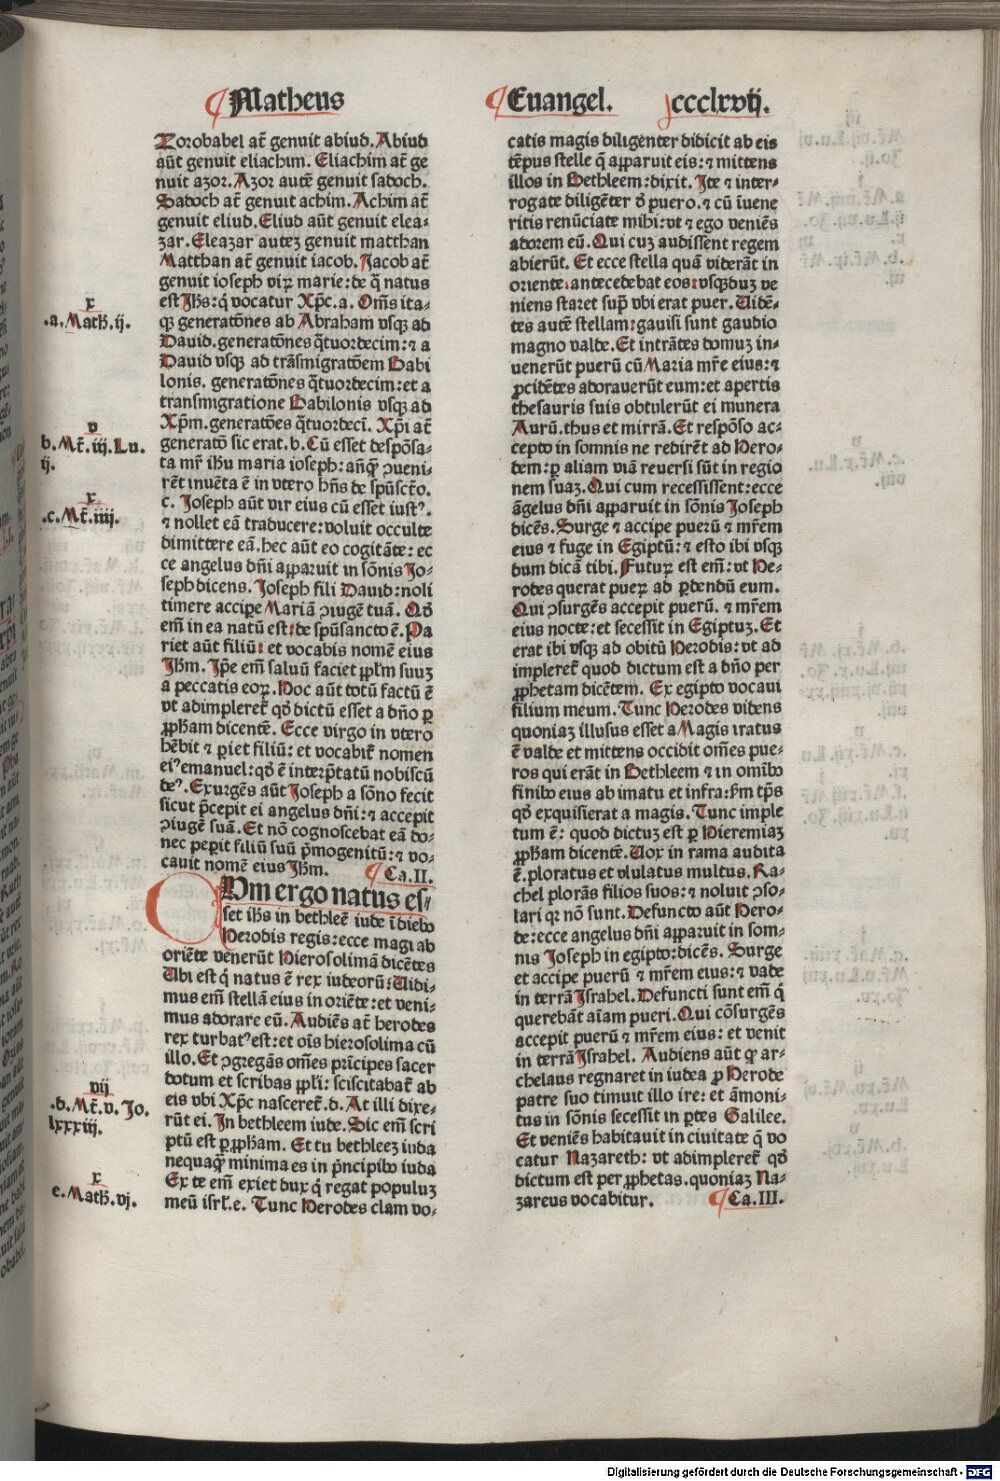 ¶Matheus
¶Euangel. ccclxvij.
Zorobabel at̄ genuit abiud. Abiud
aūt genuit eliachim. Eliachim at̄ ge
nuit azor. Azor autē genuit sadoch.
Sadoch at̄ genuit achim. Achim at̄
genuit eliud. Eliud aūt genuit elea⸗
zar. Eleazar autez genuit matthan
Matthan at̄ genuit iacob. Jacob at̄
genuit ioseph viꝝ marie: de q̄ natus
est Jh̄s: q̇ vocatur Xp̄c. a. Om̄s ita⸗
qꝫ generatōnes ab Abraham vsqꝫ ad
Dauid. generatōnes q̄tuordecim: ⁊ a
Dauid vsqꝫ ad trāsmigratōem Babi
lonis. generatōnes q̄tuordecim: et a
transmigratione Babilonis vsqꝫ ad
Xp̄m. generatōnes q̄tuordecī. Xp̄i at̄
generatō sic erat. b. Cū esset despōsa⸗
ta mr̄ ih̄u maria ioseph: añq̄ꝫ ꝯueni⸗
rēt inuēta ē in vtero hn̄s de sp̄uscto.
c. Joseph aūt vir eius cū esset iustꝰ.
⁊ nollet eā traducere: voluit occulte
dimittere eā. hec aūt eo cogitāte: ec
ce angelus dn̄i aꝑparuit in sōnis Jo⸗
seph dicens. Joseph fili Dauid: noli
timere accipe Mariā ꝯiugē tuā. Qd̄
em̄ in ea natū est: de sp̄usancto ē. Pa
riet aūt filiū: et vocabis nomē eius
Jh̄m. Jp̄e em̄ saluū faciet ꝓpl̄m suuz
a peccatis eoꝝ. Hoc aūt totū factū ē
vt adimpleret̄ qd̄ dictū esset a dn̄o ꝑ
ꝓph̄am dicentē. Ecce virgo in vtero
hēbit ⁊ ꝑiet filiū: et vocabit̄ nomen
eiꝰ emanuel: qd̄ ē interp̄tatū nobiscū
deꝰ. Exurgēs aūt Joseph a sōno fecit
sicut p̄cepit ei angelus dn̄i: ⁊ accepit
ꝯiugē suā. Et nō cognoscebat eā do⸗
nec peꝑit filiū suū p̄mogenitū: ⁊ vo⸗
cauit nomē eius Jh̄m. ¶Ca.II.
CVm ergo natus es⸗
set ih̄s in bethleē iude ī dieb⁹
Herodis regis: ecce magi ab
oriēte venerūt Hierosolimā dicētes
Ubi est q̇ natus ē rex iudeorū: Uidi⸗
mus em̄ stellā eius in oriēte: et veni⸗
mus adorare eū. Audiēs at̄ herodes
rex turbatꝰ est: et oīs hierosolima cū
illo. Et ꝯgregās om̄es prīcipes sacer
dotum et scribas ꝓpl̄i: sciscitabat̄ ab
eis vbi Xp̄c nasceret̄. d. At illi dixe⸗
rūt ei. In bethleem iude. Sic em̄ scri
ptū est ꝑ ꝓph̄am. Et tu bethleez iuda
nequaq̄ꝫ minima es in p̄ncipib⁹ iuda
Ex te em̄ exiet dux q̇ regat populuz
meū isrl̄. e. Tunc Herodes clam vo⸗
x
.a. Math̄. ij.
v
b. Mt̄. iij. Lu.
ij.
x
.c. Mt̄. iiij.
vij
.d. Mt̄. v. Jo.
lxxxiij.
x
e. Math̄. vj.
catis magis diligenter didicit ab eis
tēpus stelle q̄ aꝑparuit eis: ⁊ mittens
illos in Bethleem: dixit. Ite ⁊ inter⸗
rogate diligēter d̄ puero. ⁊ cū īuene
ritis renūciate mihi: vt ⁊ ego veniēs
adorem eū. Qui cuz audissent regem
abierūt. Et ecce stella quā viderāt in
oriente: antecedebat eos: vsqꝫ duz ve
niens staret sup̄ vbi erat puer. Uidē⸗
tes autē stellam: gauisi sunt gaudio
magno valde. Et intrātes domuz in⸗
uenerūt puerū cū Maria mr̄e eius: ⁊
ꝓcidētes adorauerūt eum: et apertis
thesauris suis obtulerūt ei munera
Aurū. thus et mirrā. Et respōso ac⸗
cepto in somnis ne redirēt ad Hero⸗
dem: ꝑ aliam viā reuersi sūt in regio
nem suaz. Qui cum recessissent: ecce
āgelus dn̄i aꝑparuit in sōnis Joseph
dicēs. Surge ⁊ accipe puerū ⁊ mr̄em
eius ⁊ fuge in Egiptū: ⁊ esto ibi vsqꝫ
dum dicā tibi. Futuꝝ est em̄: vt He⸗
rodes querat pueꝝ ad ꝑdendū eum.
Qui ꝯsurgēs accepit puerū. ⁊ mr̄em
eius nocte: et secessit in Egiptuz. Et
erat ibi vsqꝫ ad obitū Herodis: vt ad
impleret̄ quod dictum est a dn̄o per
ꝓphetam dicētem. Ex egipto vocaui
filium meum. Tunc Herodes videns
quoniaz illusus esset a Magis iratus
ē valde et mittens occidit om̄es pue⸗
ros qui erāt in Bethleem ⁊ in omīb⁹
finib⁹ eius ab imatu et infra: ẜm tp̄s
qd̄ exquisierat a magis. Tunc imple
tum ē: quod dictuz est ꝑ Hieremiaz
ꝓph̄am dicentē. Uox in rama audita
ē. ploratus et vlulatus multus. Ra⸗
chel plorās filios suos: ⁊ noluit ꝯso⸗
lari qꝛ nō sunt. Defuncto aūt Hero⸗
de: ecce angelus dn̄i aꝑparuit in som⸗
nis Joseph in egipto: dicēs. Surge
et accipe puerū ⁊ mr̄em eius: ⁊ vade
in terrā Israhel. Defuncti sunt em̄ q̇
querebāt aīam pueri. Qui cōsurgēs
accepit puerū ⁊ mr̄em eius: et venit
in terrā Israhel. Audiens aūt ꝙ ar⸗
chelaus regnaret in iudea ꝓ Herode
patre suo timuit illo ire: et āmoni⸗
tus in sōnis secessit in ꝑtes Galilee.
Et veniēs habitauit in ciuitate q̄ vo
catur Nazareth: vt adimpleret̄ qd̄
dictum est per ꝓphetas. quoniaz Na⸗
zareus vocabitur. ¶Ca.III.
Digitalisierung gefördert durch die Deutsche Forschungsgemeinschaft - DFG